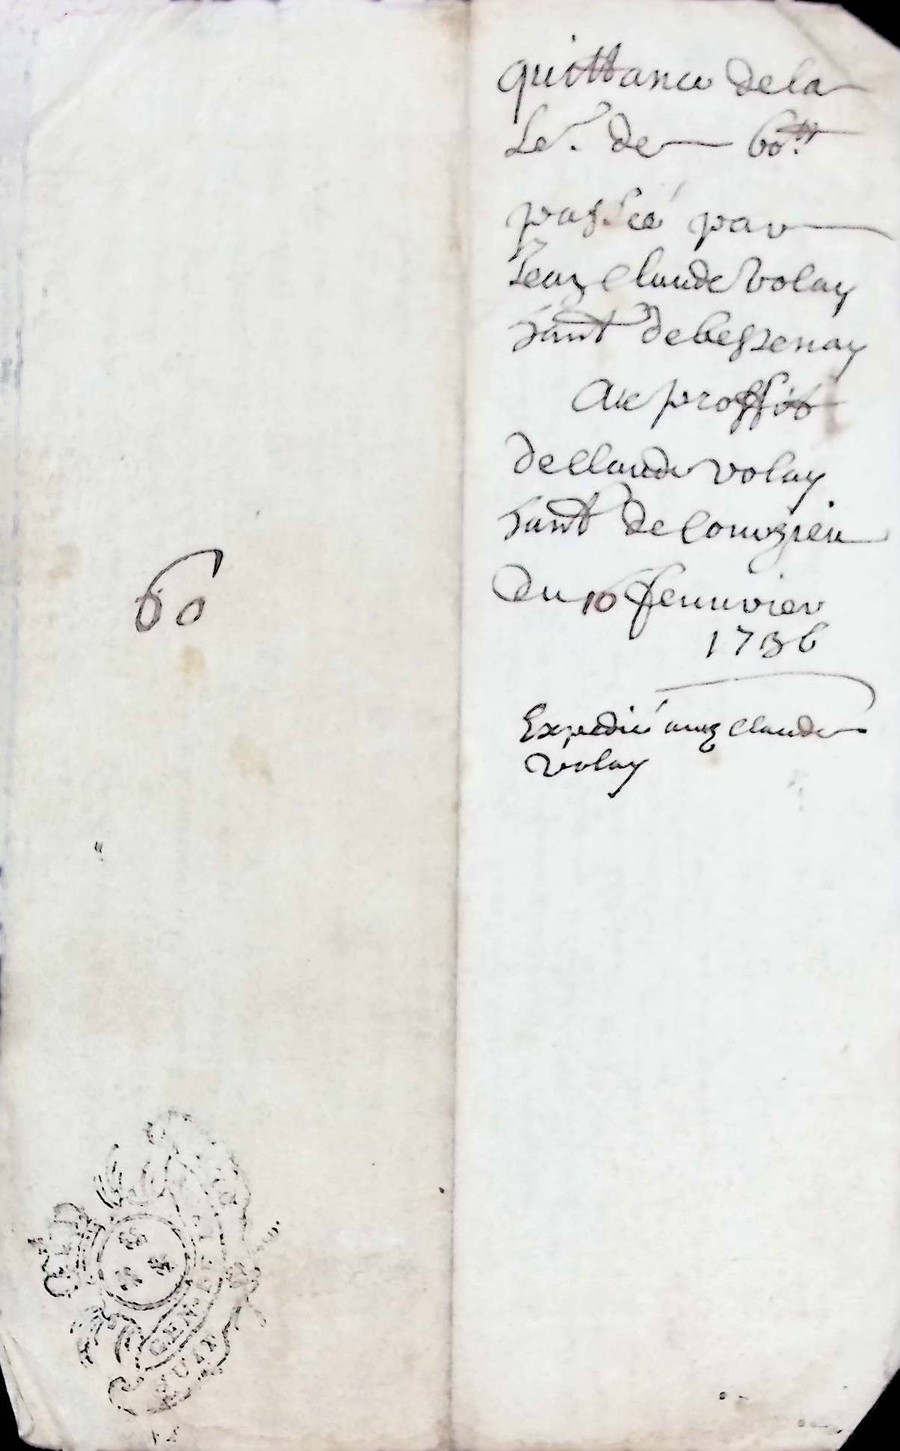 60
quittance de la
Se. de 60.tt
passeé par
Jean Claude Volay
hant de bessenay
Au proffit
de Claude volay
hant de Courzieu
du 16 feuurier
1736
Expedié aud Claude
volay
GEN. DE